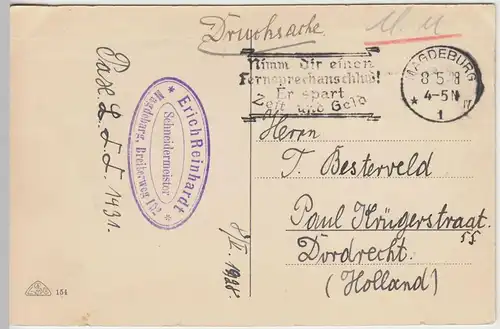 Drucksache.
Nimm dir einen
Fernsprechanschluß!
Er spart
Zeit und Geld
MAGDEBURG
8 5 28
4-5 N
* 1
Erich Reinhardt
Schneidermeister
* Magdeburg, Breiteweg 152 *
1931.
8/V. 1928
Herrn
T. Besterveld
Paul Krügerstraat.
55
Dordrecht.
(Holland)
154